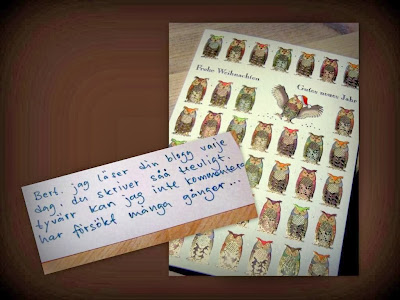 Frohe Weihnachten
Gutes neues Jahr
Bert. jag läser din blogg varje
dag, du skriver såå trevligt.
tyvärr kan jag inte kommentera
har försökt många gånger...